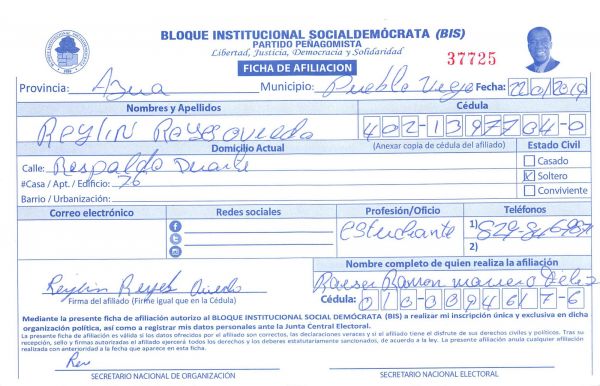 BLOQUE INSTITUCIONAL SOCIALDEMÓCRATA (BIS)
PARTIDO PEÑAGOMISTA
Libertad, Justicia, Democracia y Solidaridad
37725
FICHA DE AFILIACION
Provincia: Azua Municipio: Pueblo Viejo Fecha: 22/01/2019
Nombres y Apellidos Cédula
Reylin Reyes oviedo 402-1397704-0
Domicilio Actual (Anexar copia de cédula del afiliado) Estado Civil
Calle: Respaldo Duarte Casado
#Casa / Apt. / Edificio: 76 Soltero
Barrio / Urbanización: Conviviente
Correo electrónico Redes sociales Profesión/Oficio Teléfonos
estudiante 1) 829-
2)
Nombre completo de quien realiza la afiliación
Reylin Reyes Oviedo Ramon
Firma del afiliado (Firme igual que en la Cédula) Cédula: 010-00894617-6
Mediante la presente ficha de afiliación autorizo al BLOQUE INSTITUCIONAL SOCIAL DEMÓCRATA (BIS) a realizar mi inscripción única y exclusiva en dicha
organización política, así como a registrar mis datos personales ante la Junta Central Electoral.
La presente ficha de afiliación es válida si los datos ofrecidos por el afiliado son correctos, las declaraciones veraces y si el afiliado tiene el disfrute de sus derechos civiles y políticos. Tras su
recepción, sello y firmas autorizadas el afiliado ejercerá todos los derechos y los deberes estatutariamente sancionados, de acuerdo a la ley. La presente afiliación anula cualquier afiliación
realizada con anterioridad a la fecha que aparece en esta ficha.
Rey
SECRETARIO NACIONAL DE ORGANIZACIÓN SECRETARIO NACIONAL ELECTORAL